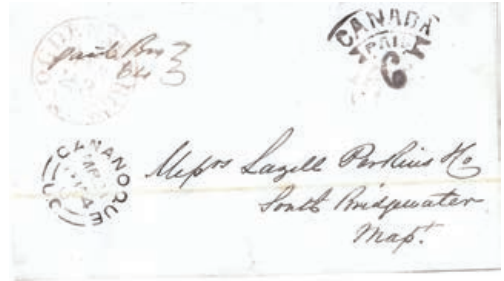 CANADA
PAID
6
paid
GANANOQUE
U.C.
Messrs Lazell Perkins & Co
South Bridgewater
Masst.